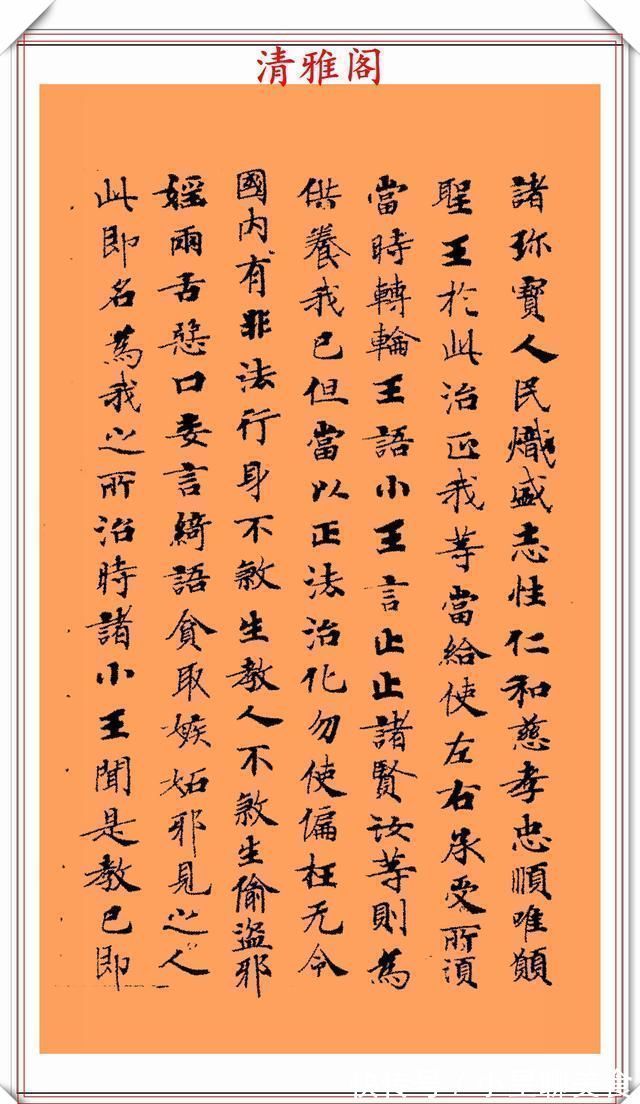 清雅阁
諸珎寶人民熾盛志性仁和慈孝忠順唯願
聖王於此治正我等當給使左右承受所須
當時轉輪王語小王言止止諸賢汝等則為
供養我已但當以正法治化勿使偏枉无令
國內有非法行身不煞生教人不煞生偷盜邪
婬兩舌惡口妄言綺語貪取嫉妬邪見之人
此即名為我之所治時諸小王聞是教已即